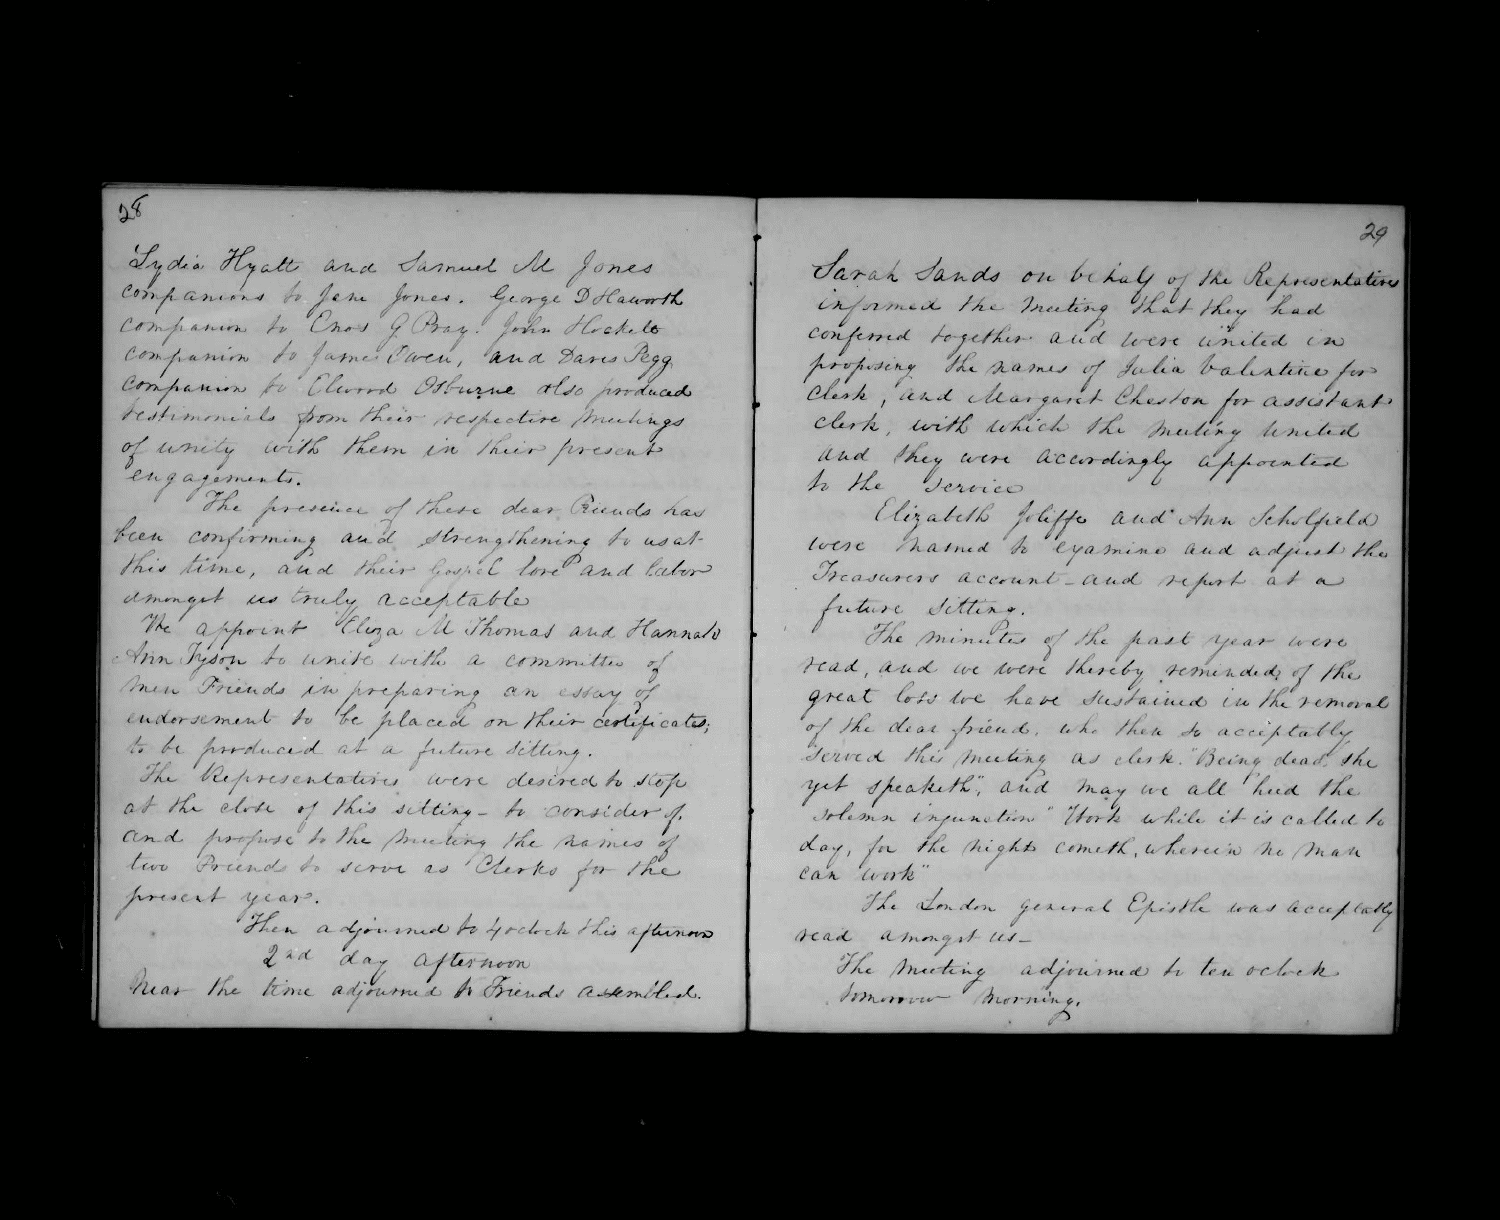 28
Lydia Hyatt and Samuel M Jones
companions to Jane Jones. George D Haworth
companion to Enos G Pray. John Hockett
companion to James Owen, and Davis Pegg
companion to Elwood Osburne also produced
testimonials from their respective Meetings
of unity with them in their present
engagements.
The presence of these dear Friends has
been confirming and strengthening to us at
this time, and their Gospel love and labor
amongst us truly acceptable
We appoint Eliza M Thomas and Hannah
Ann Tyson to unite with a committee of
Men Friends in preparing an essay of
endorsement to be placed on their certificates;
to be produced at a future sitting.
The Representatives were desired to stop
at the close of this sitting - to consider of,
and propose to the Meeting the names of
two Friends to serve as Clerks for the
present year.
Then adjourned to 4 oclock this afternoon
2nd day afternoon
Near the time adjourned to Friends assembled.
29
Sarah Sands on behalf of the Representatives
informed the Meeting that they had
conferred together and were united in
proposing the names of Julia Valentine for
Clerk, and Margaret Cheston for assistant
clerk, with which the Meeting united
and they were accordingly appointed
to the service
Elizabeth Joliffe and Ann Scholfield
were named to examine and adjust the
Treasurers account - and report at a
future sitting.
The minutes of the past year were
read, and we were thereby reminded of the
great loss we have sustained in the removal
of the dear friend, who then so acceptably
served this Meeting as clerk. "Being dead, she
yet speaketh", and may we all heed the
solemn injunction "Work while it is called to
day, for the night cometh, wherein no man
can work"
The London general Epistle was acceptably
read amongst us -
The Meeting adjourned to ten oclock
tomorrow morning.